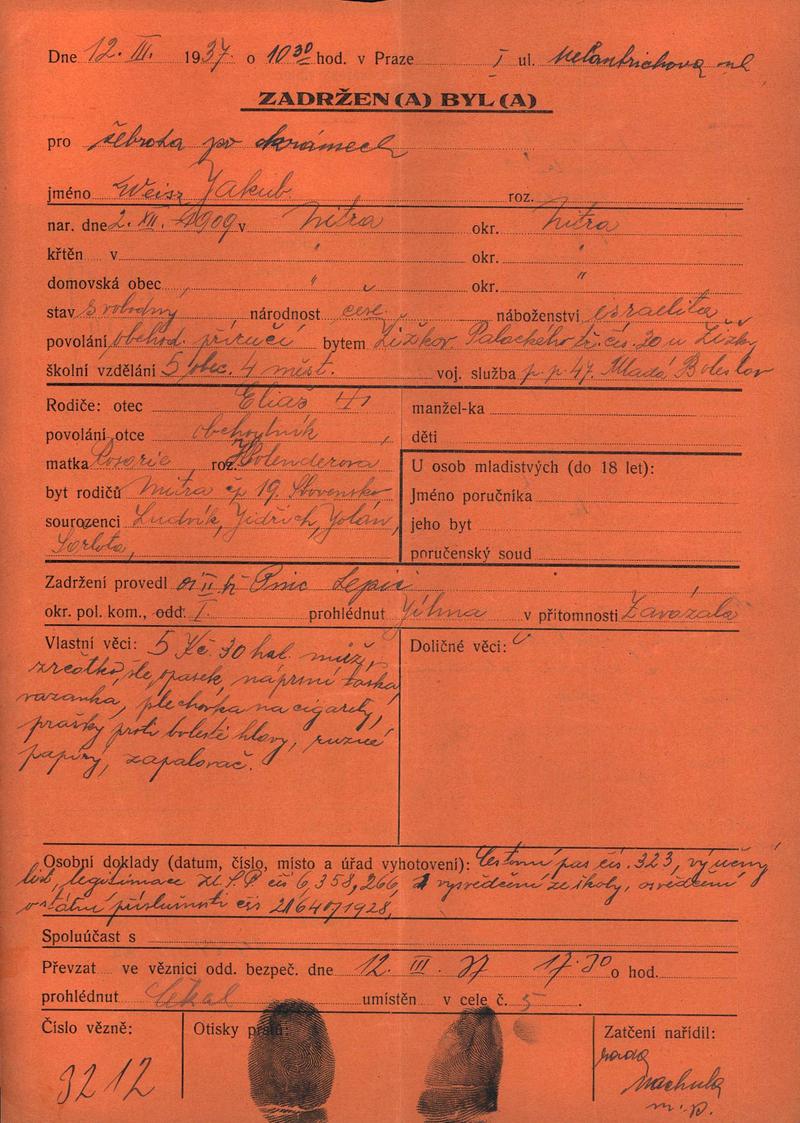 Dne 12. III. 1937 o 10 30 hod. v Praze I ul. Melantrichova ul
ZADRŽEN(A) BYL(A)
pro žebrota po krámech
jméno Weisz Jakub roz.
nar. dne 2. XII. 1909 v Nitra okr. Nitra
křtěn v " okr. "
domovská obec " okr. "
stav svobodný národnost česk. náboženství israelita
povolání obchod. příručí bytem Žižkov. Palackého tř. čís. 30 u Žižky
školní vzdělání 5 obec. 4 měst. voj. služba p. p. 47. Mladá Boleslav
Rodiče: otec Eliáš manžel-ka
povolání otce obchodník, děti
matka roz. Holenderova
U osob mladistvých (do 18 let):
byt rodičů Nitra čp 19. Slovensko Jméno poručníka
sourozenci Ludvík, Jidřich, Yolan, jeho byt
Šarlota, poručenský soud
Zadržení provedl Lepič
okr. pol. kom., odd: I. prohlédnut Jílma v přítomnosti Zavázala
Vlastní věci: 5 Kč 30 hal. nůž, Doličné věci:
zrcátko, opasek, náprsní taška,
vazanka, plechovka na cigarety,
prášky proti bolesti hlavy, ruzné
papíry, zapalovač.
Osobní doklady (datum, číslo, místo a úřad vyhotovení): Cestovní pas čís. 323, výuční
list, legitimace čís 6,358,266, vysvědčení ze školy, osvědčení
o státní příslušnosti čís 21640/1928,
Spoluúčast s
Převzat ve věznici odd. bezpeč. dne 12. III. 37 17.30 o hod.
prohlédnut Čekal umístěn v cele č. 5.
Číslo vězně: Otisky prstů: Zatčení nařídil:
3212 rada
Machula
m.p.